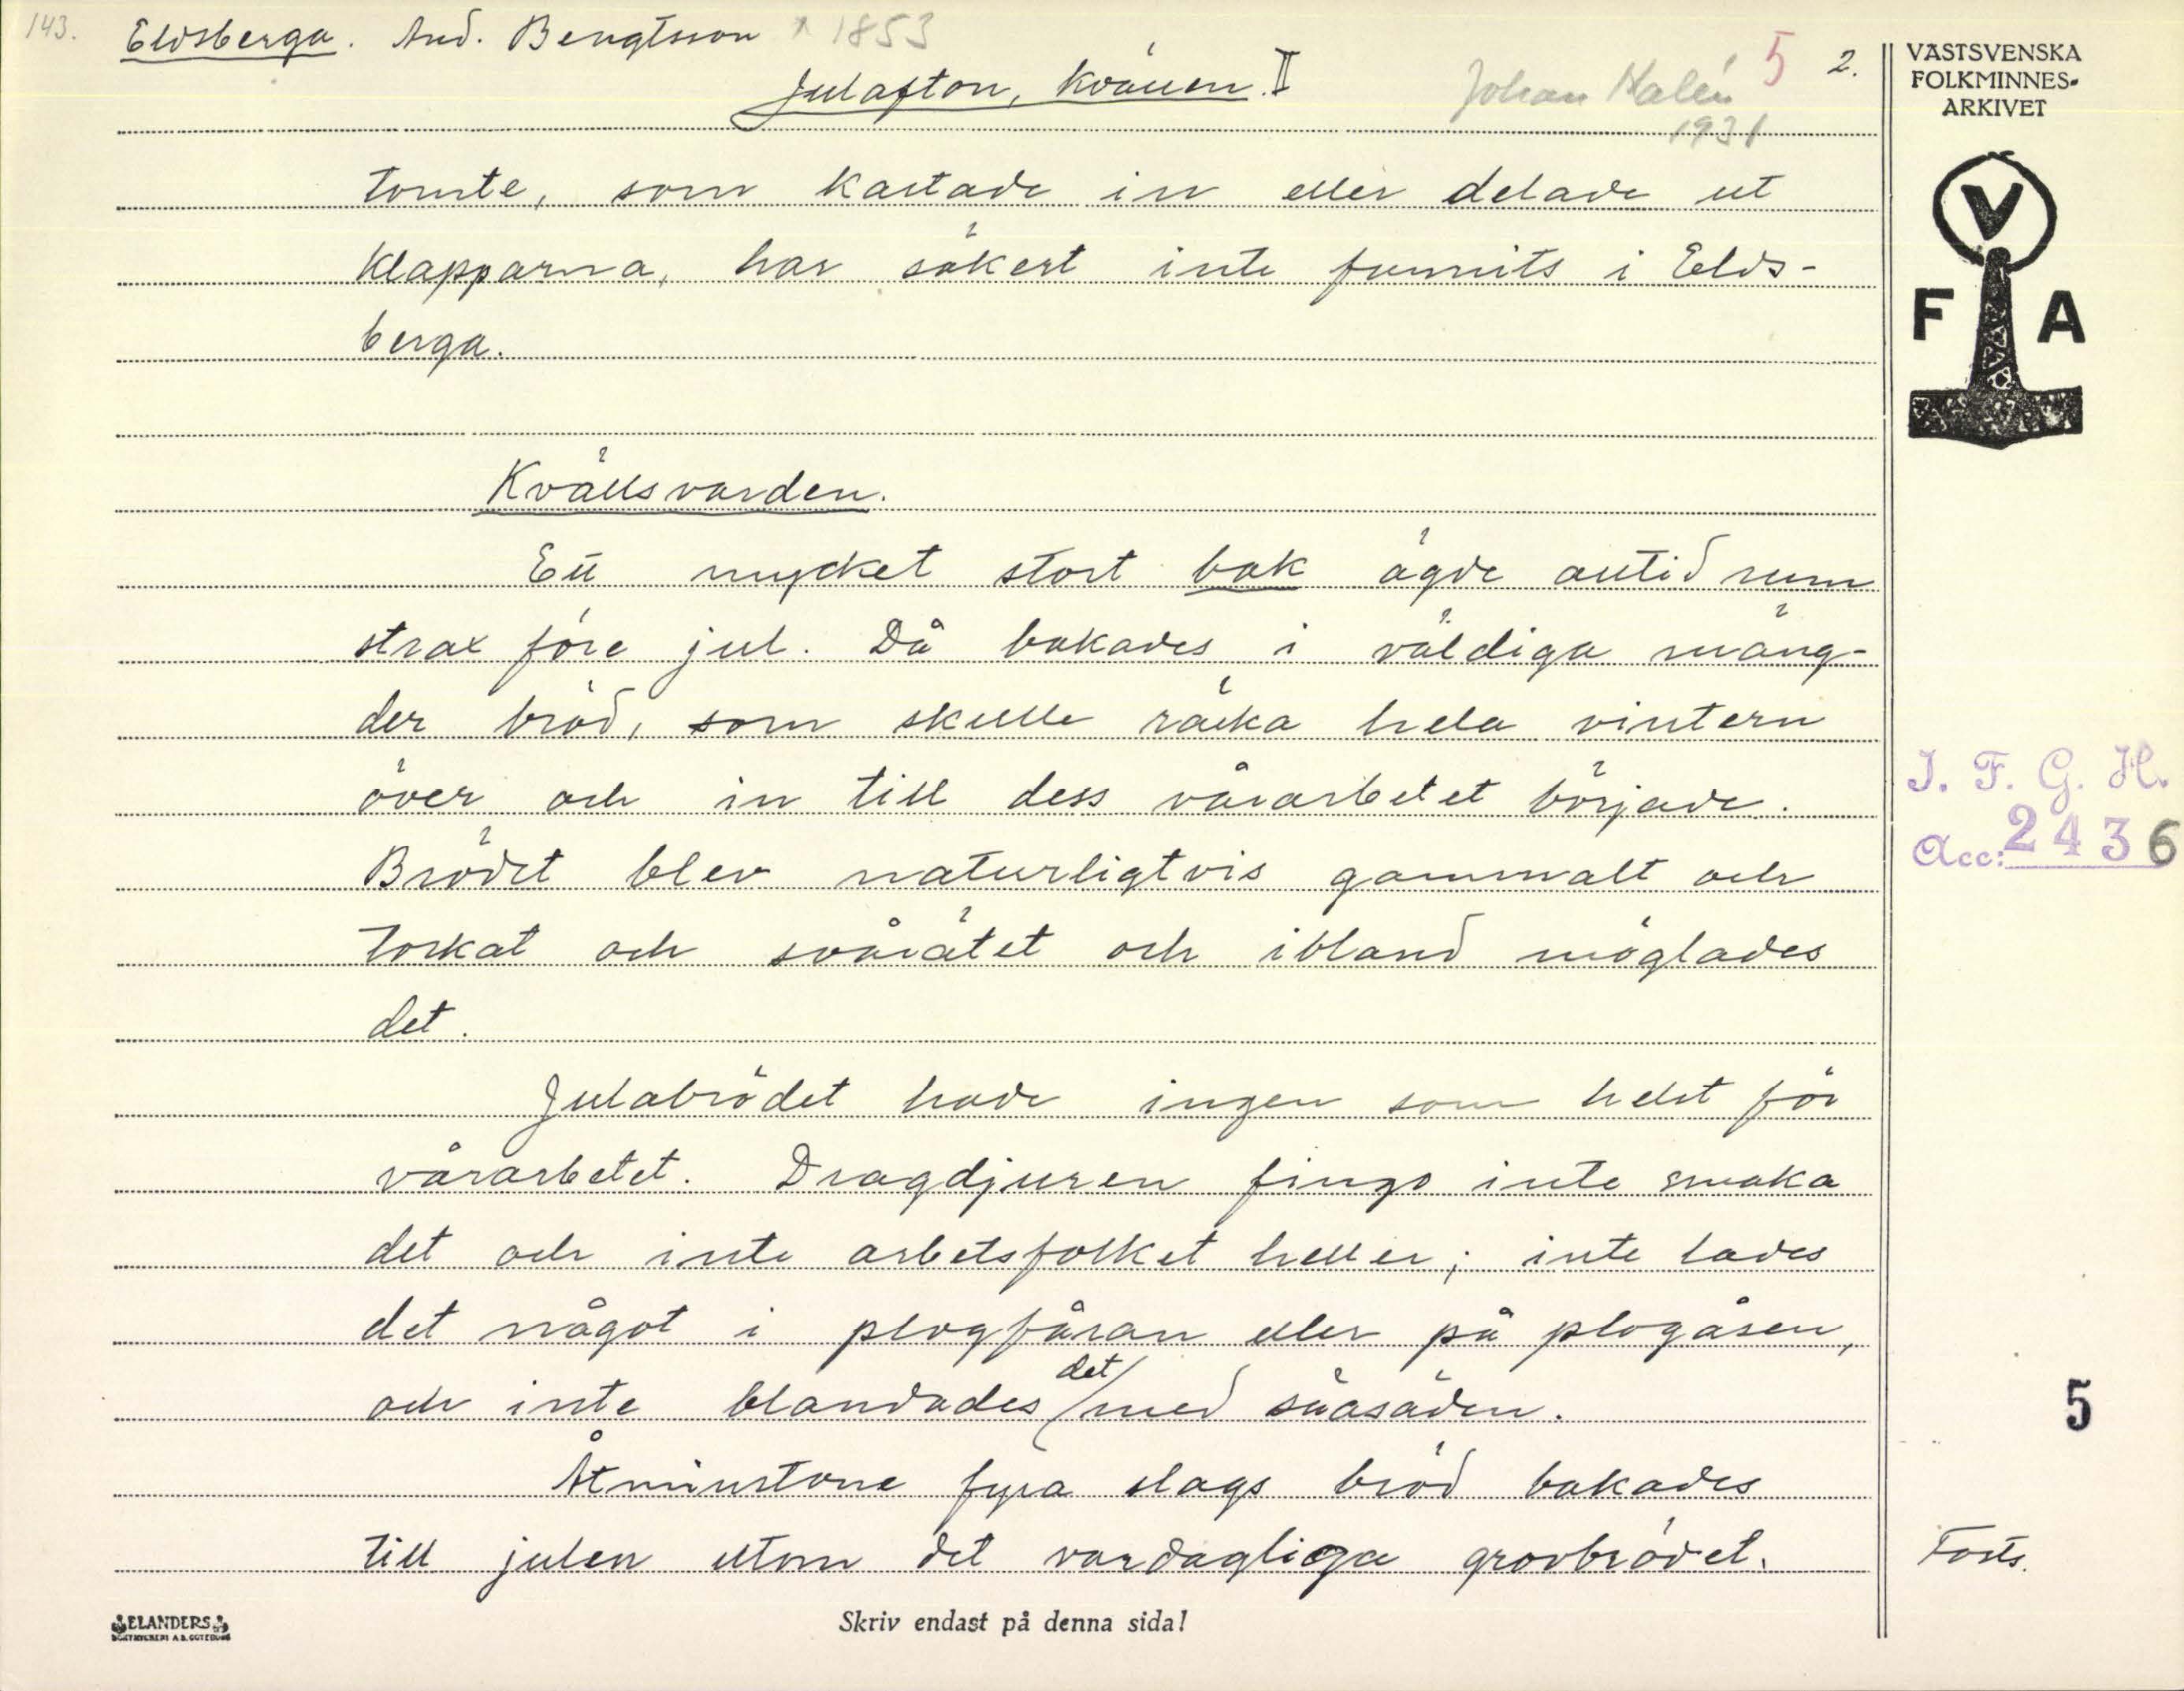 143. Eldsberga. And. Bengtsson * 1853
Julafton, kvällen. II
Johan Kalén 5 2.
1931
tomte, som kastade in eller delade ut
klapparna, har säkert inte funnits i Elds-
berga.
Kvällsvarden.
Ett mycket stort bak ägde alltid rum
strax före jul. Då bakades i väldiga mäng-
der bröd, som skulle räcka hela vintern
över och in till dess vårarbetet började.
Brödet blev naturligtvis gammalt och
torkat och svårätet och ibland möglades
det.
Julabrödet hade ingen som helst för
vårarbetet. Dragdjuren fingo inte smaka
det och inte arbetsfolket heller; inte lades
det något i plogfåran eller på plogåsen,
och inte blandades det med såasäden.
Åtminstone fyra slags bröd bakades
till julen utom det vardagliga grovbrödet.
ELANDERS
BOKTRYCKERI A.B. GÖTEBORG
Skriv endast på denna sida!
VÄSTSVENSKA
FOLKMINNES-
ARKIVET
V
F A
I. F. G. H.
Acc: 2436
5
Forts.